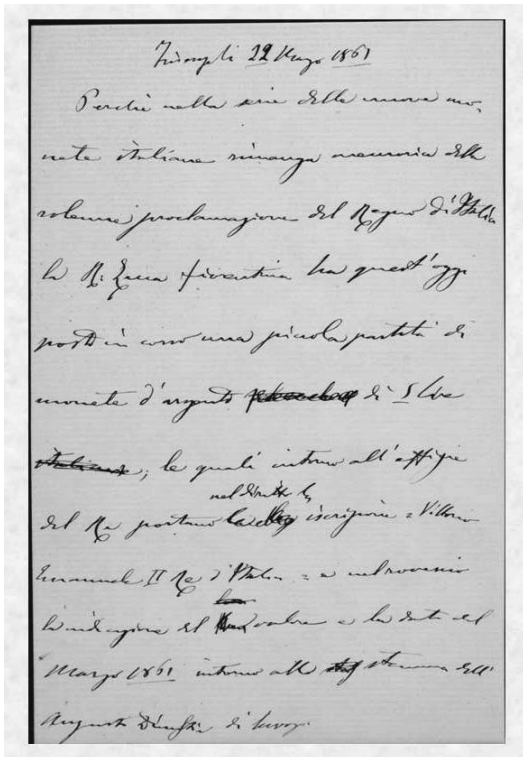 22 Marzo 1861
Perchè nella serie delle nuove mo-
nete italiane rimanga memoria della
solenne proclamazione del Regno d'Italia
la R. Zecca fiorentina ha quest'oggi
posto in corso una piccola partita di
monete d'argento di 5 lire
italiane; le quali intorno all'effigie
nel diritto la
del Re portano la iscrizione = Vittorio
Emanuele II Re d'Italia = e nel rovescio
la indicazione del valore e la data del
Marzo 1861 intorno allo stemma dell'
Augusta Dinastia di Savoja.